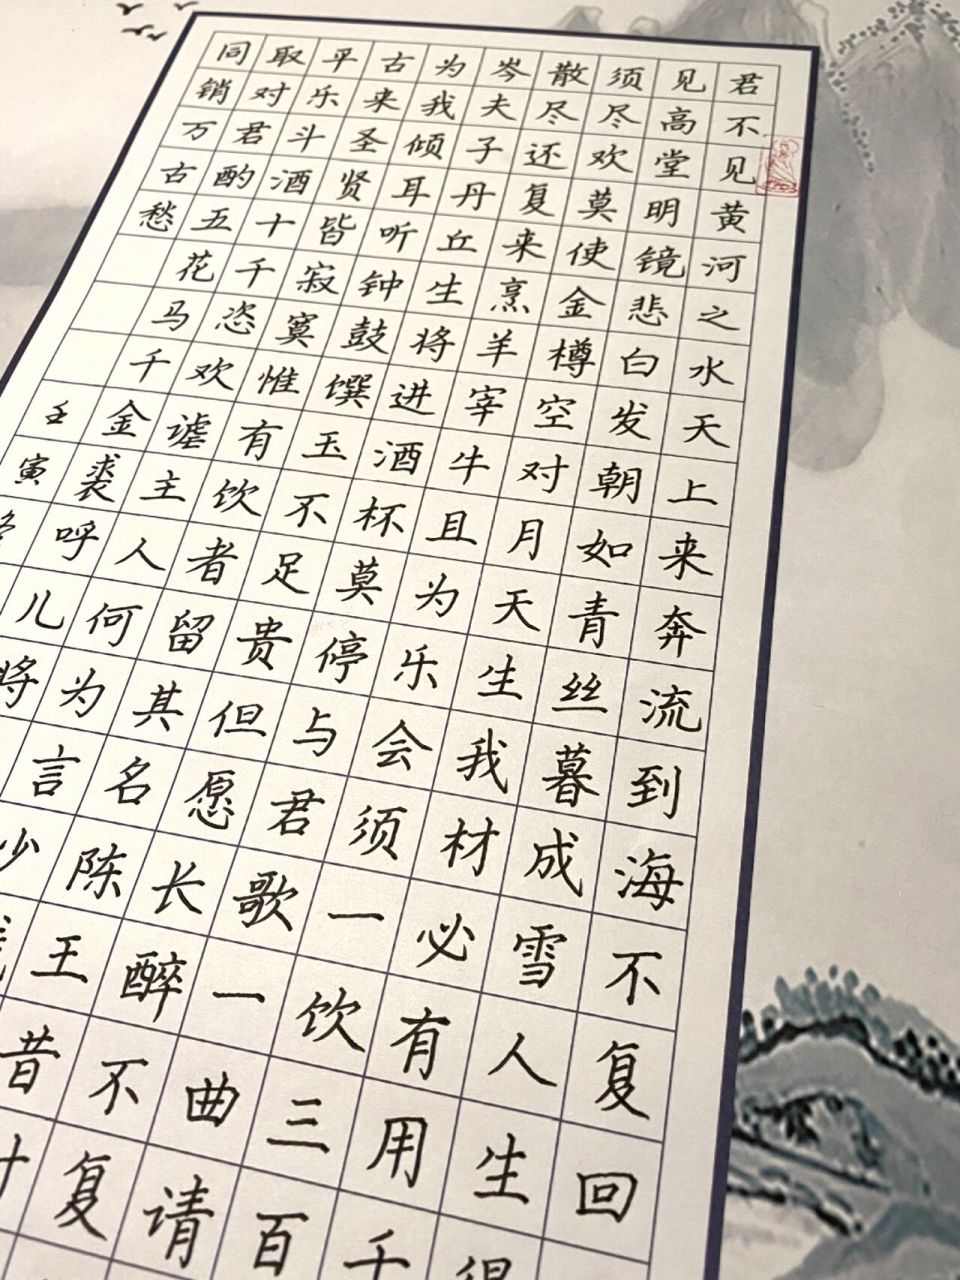 君不见黄河之水天上来奔流到海不复回
见高堂明镜悲白发朝如青丝暮成雪人生得
须尽欢莫使金樽空对月天生我材必有用千
散尽还复来烹羊宰牛且为乐会须一饮三百
岑夫子丹丘生将进酒杯莫停与君歌一曲请
为我倾耳听钟鼓馔玉不足贵但愿长醉不复
古来圣贤皆寂寞惟有饮者留其名陈王昔时
平乐斗酒十千恣欢谑主人何为言少
取对君酌五花马千金裘呼儿将
同销万古愁
壬寅